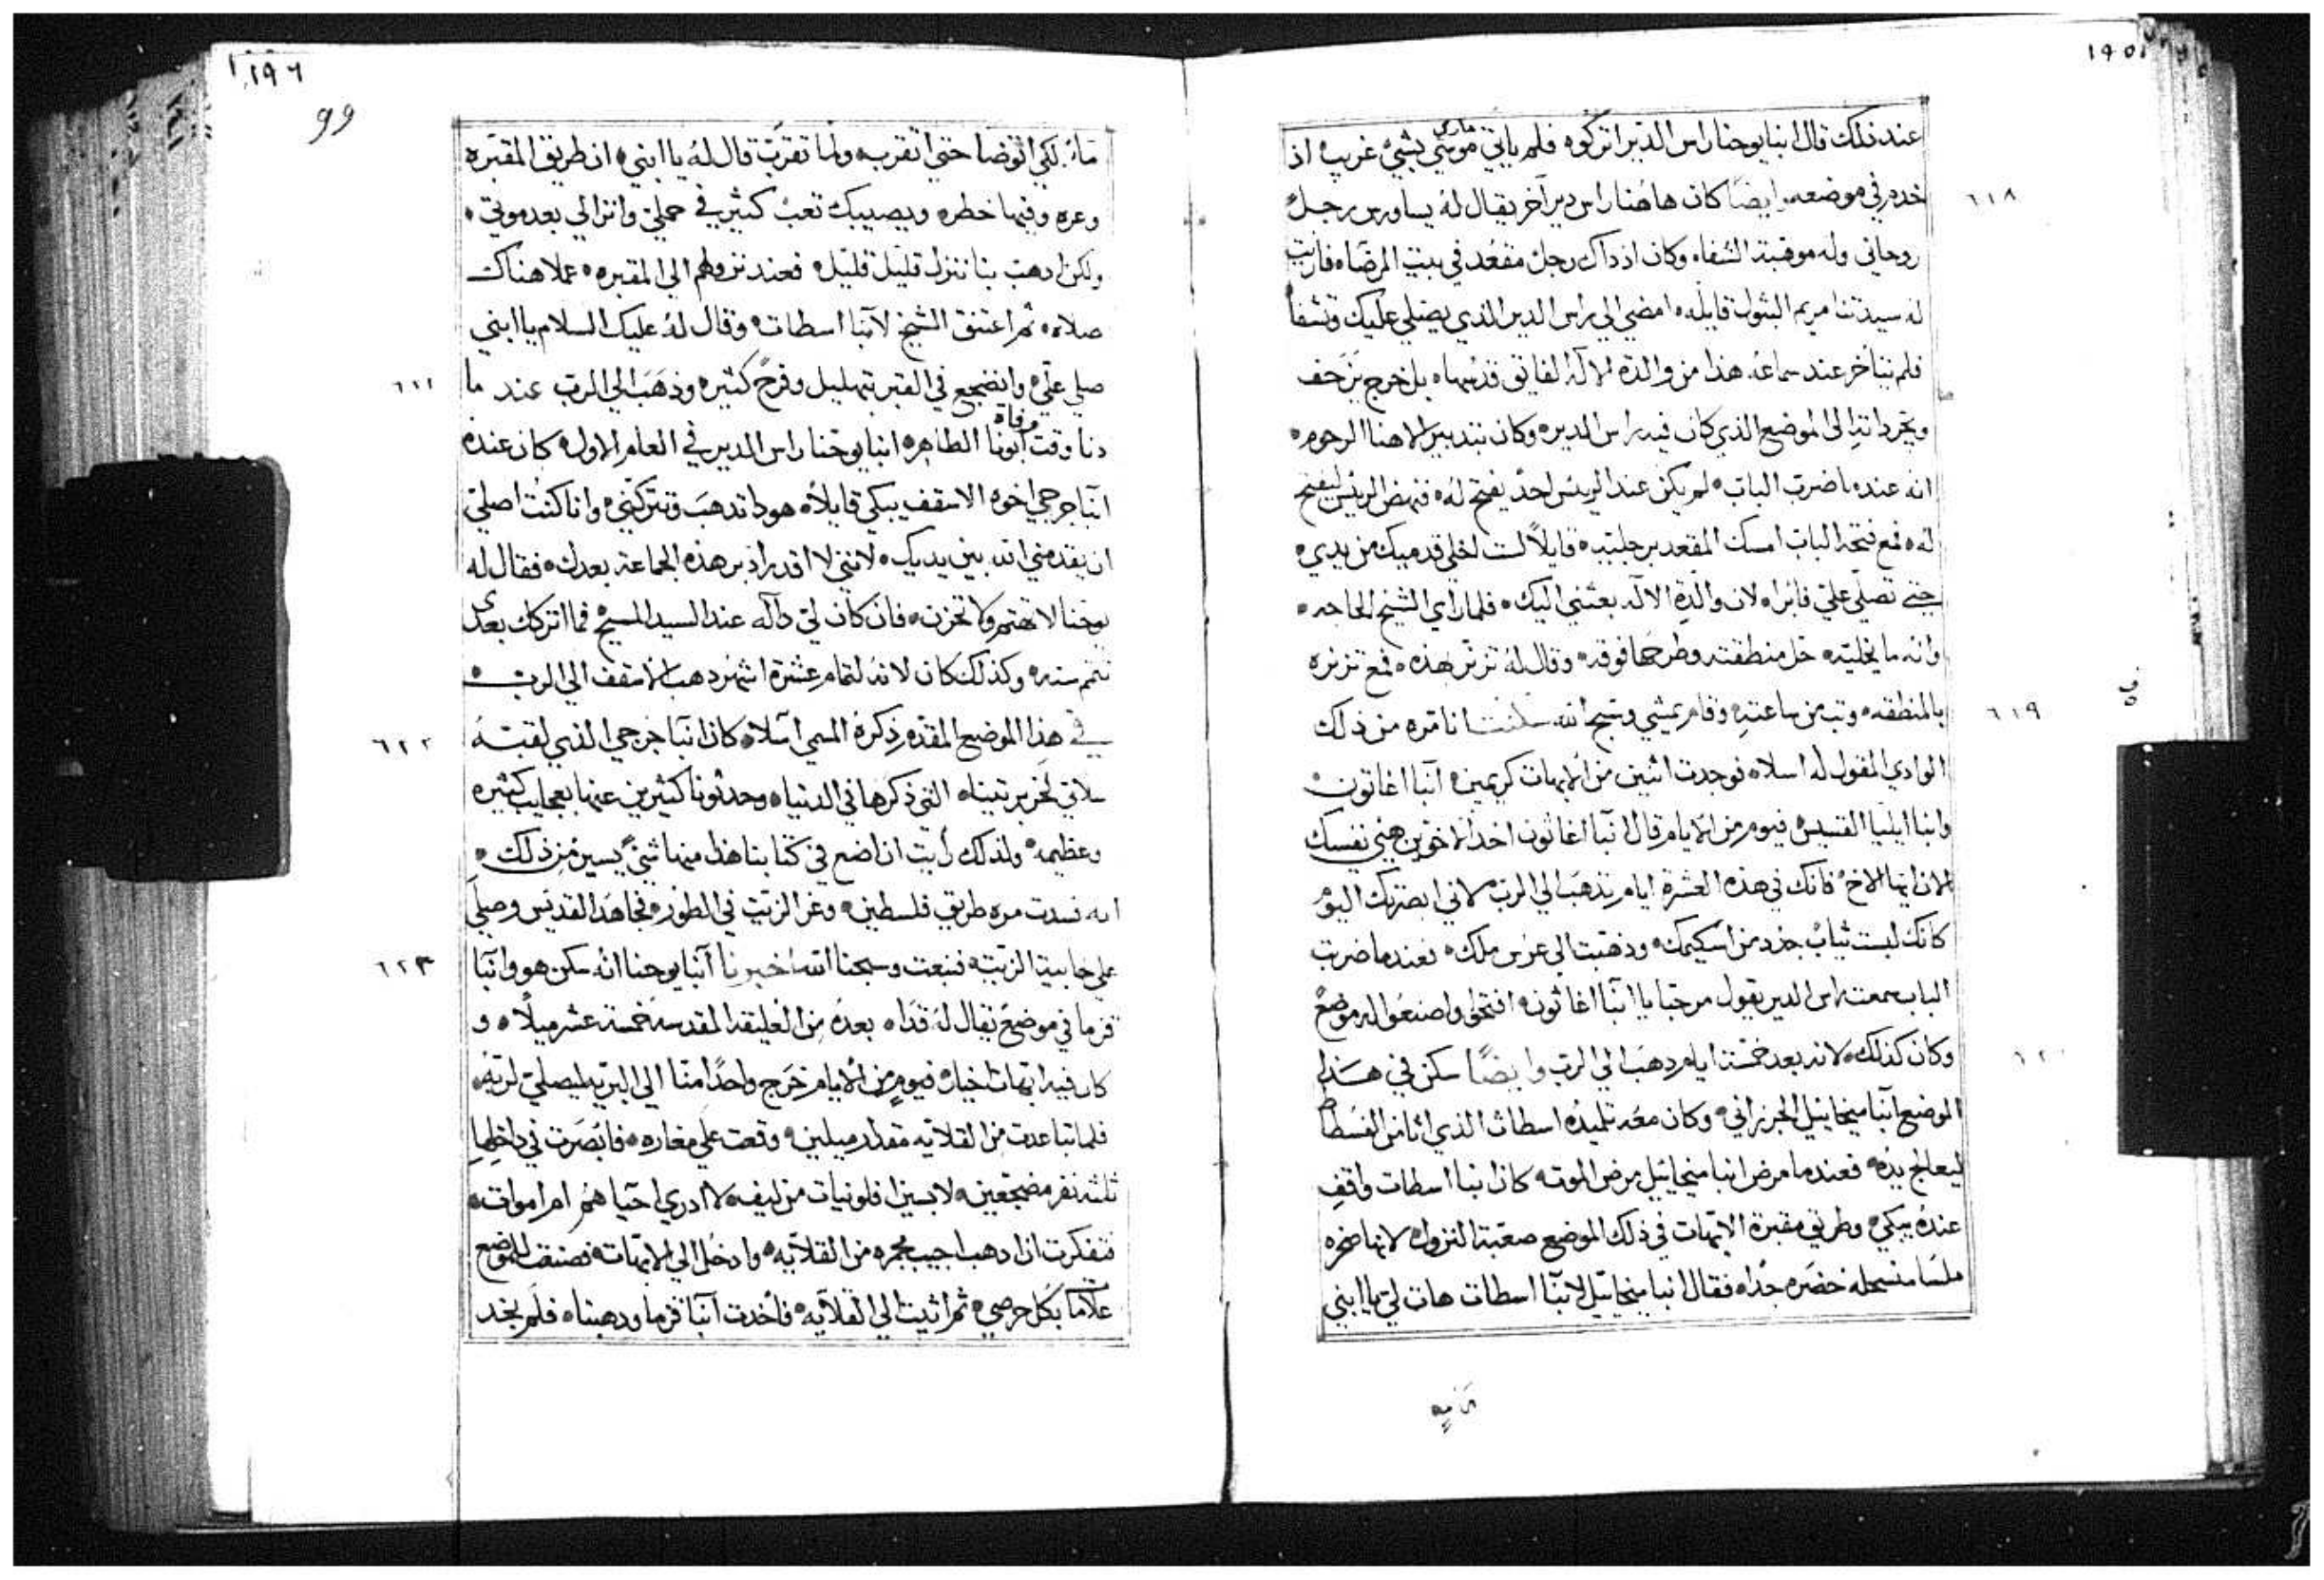 ١٩٥
عند ذلك قال انبا يوحنا راس الدير اتركوه فلم ياتي ماري موسي بشي غريب اذ
خدم في موضعه وايضا كان هاهنا راس دير آخر يقال له يساورس رجل
٦١٨
روحاني وله موهبة الشفاه وكان اذ داك رجل مقعد في بيت المرضاه فاريت
له سيدتنا مريم البتول قايله امضي الي راس الدير الذي يصلي عليك وتشفا
فلم يتأخر عند سماعه هذا من والدة الاله الفايق قدسها بل خرج يزحف
ويجر داته الى الموضع الذي كان فيه راس الدير وكان بتدبير الاهنا الرحوم
انه عند ما ضرب الباب لم يكن عند الريس احد يفتح له فنهض الريس ليفتح
له فمع فتحه الباب امسك المقعد برجليه قايلاً لست اخلي قدميك من يدي
حتى تصلي علي فابرا لان والدة الاله بعثني اليك فلما راي الشيخ لحاجه
وانه ما يخليه حل منطقته وطرحها فوقه وقال له تزنر بهذه فمع تزنره
بالمنطقه وتب من ساعته وقام يمشي وتسبح الله سكنت انا مره من ذلك
٦١٩
الوادي المقول له اسلاه فوجدت اثنين من الابهات كريمين انبا اغاثون
وانبا ايليا القسيس فيوم من الايام قال انبا اغاثون احد الاخوين هيي نفسك
الان ايها الاخ فانك في هذه العشرة ايام تذهب الي الرب لاني ابصرتك اليوم
كانك لبست ثياب جدد من اسكيمك وذهبت الي عرس ملك فعند ما ضرب
الباب سمعت راس الدير يقول مرحبا يا انبا اغاثون افتحوا واصنعوا له موضع
وكان كذلك لانه بعد خمسة ايام دهب الي الرب وايضًا سكن في هذا
٦٢٠
الموضع انبا ميخاييل الجرزاني وكان معه تلميده اسطات الذي اتا من الفسطاط
ليعالج يده فعند ما مرض انبا ميخاييل مرض الموت كان انبا اسطات واقف
عنده يبكي وطريق مقبرة الابهات في ذلك الموضع صعبة النزول لانها صخره
ملسا منسحله خضره جدا فقال انبا ميخاييل لانبا اسطات هات لي يا ابني
١٩٦
99
ماء لكي اتوضا حتى اتقرب ولما تقرب قال له يا ابني ان طريق المقبره
وعره وفيها خطره ويصيبك تعب كثير في حملي وانزالي بعد موتي
ولكن ادهب بنا ننزل قليل قليل فعند نزولهم الي المقبره عملا هناك
صلاه ثم اعتنق الشيخ لانبا اسطات وقال له عليك السلام يا ابني
صلي علي وانضجع في القبر بتهليل وفرح كثير وذهب الي الرب عند ما
٦٢١
دنا وقت وفاة ابونا الطاهر انبا يوحنا راس الدير في العام الاول كان عنده
انبا جرجي اخوه الاسقف يبكي قايلا هودا تدهب وتتركني وانا كنت اصلي
ان يقدمني الله بين يديك لانني لا اقدر ادبر هذه الجماعة بعدك فقال له
يوحنا لا تهتم ولا تحزن فان كان لي دآله عند السيد المسيح فما اتركك بعدي
تتم سنه وكذلك كان لانه لتمام عشرة اشهر دهب الاسقف الي الرب
في هذا الموضع المقدم ذكره المسمي اسلاه كان انبا جرجي الذي لقبته
٦٢٢
وعظيمه ولذلك رأيت ان اضع في كتابنا هذا منها شي يسير من ذلك
انه نسدت مره طريق فلسطين وعز الزيت في الطور فجاهد القديس وصلي
علي خابية الزيت فنبعت وسبحنا الله اخبرنا انبا يوحنا انه سكن هو وانبا
٦٢٣
قزما في موضع يقال له قداه بعده من العليقة المقدسه خمسة عشر ميلاه و
كان فيه ابهات اخيار فيوم من الايام خرج واحدًا منا الي البريه ليصلي لربه
فلما تباعدت من القلايه مقدار ميلين وقعت علي مغاره فابصرت في داخلها
ثلثه نفر مضجعين لابسين افلونيات من ليف لا ادري احيا هم ام اموات
فتفكرت ان ادهب اجيب مجمره من القلايه وادخل الي الابهات فصنفت للموضع
علامًا بكل حرصي ثم اتيت الي القلايه فأخدت انبا قزما ودهبنا فلم نجد